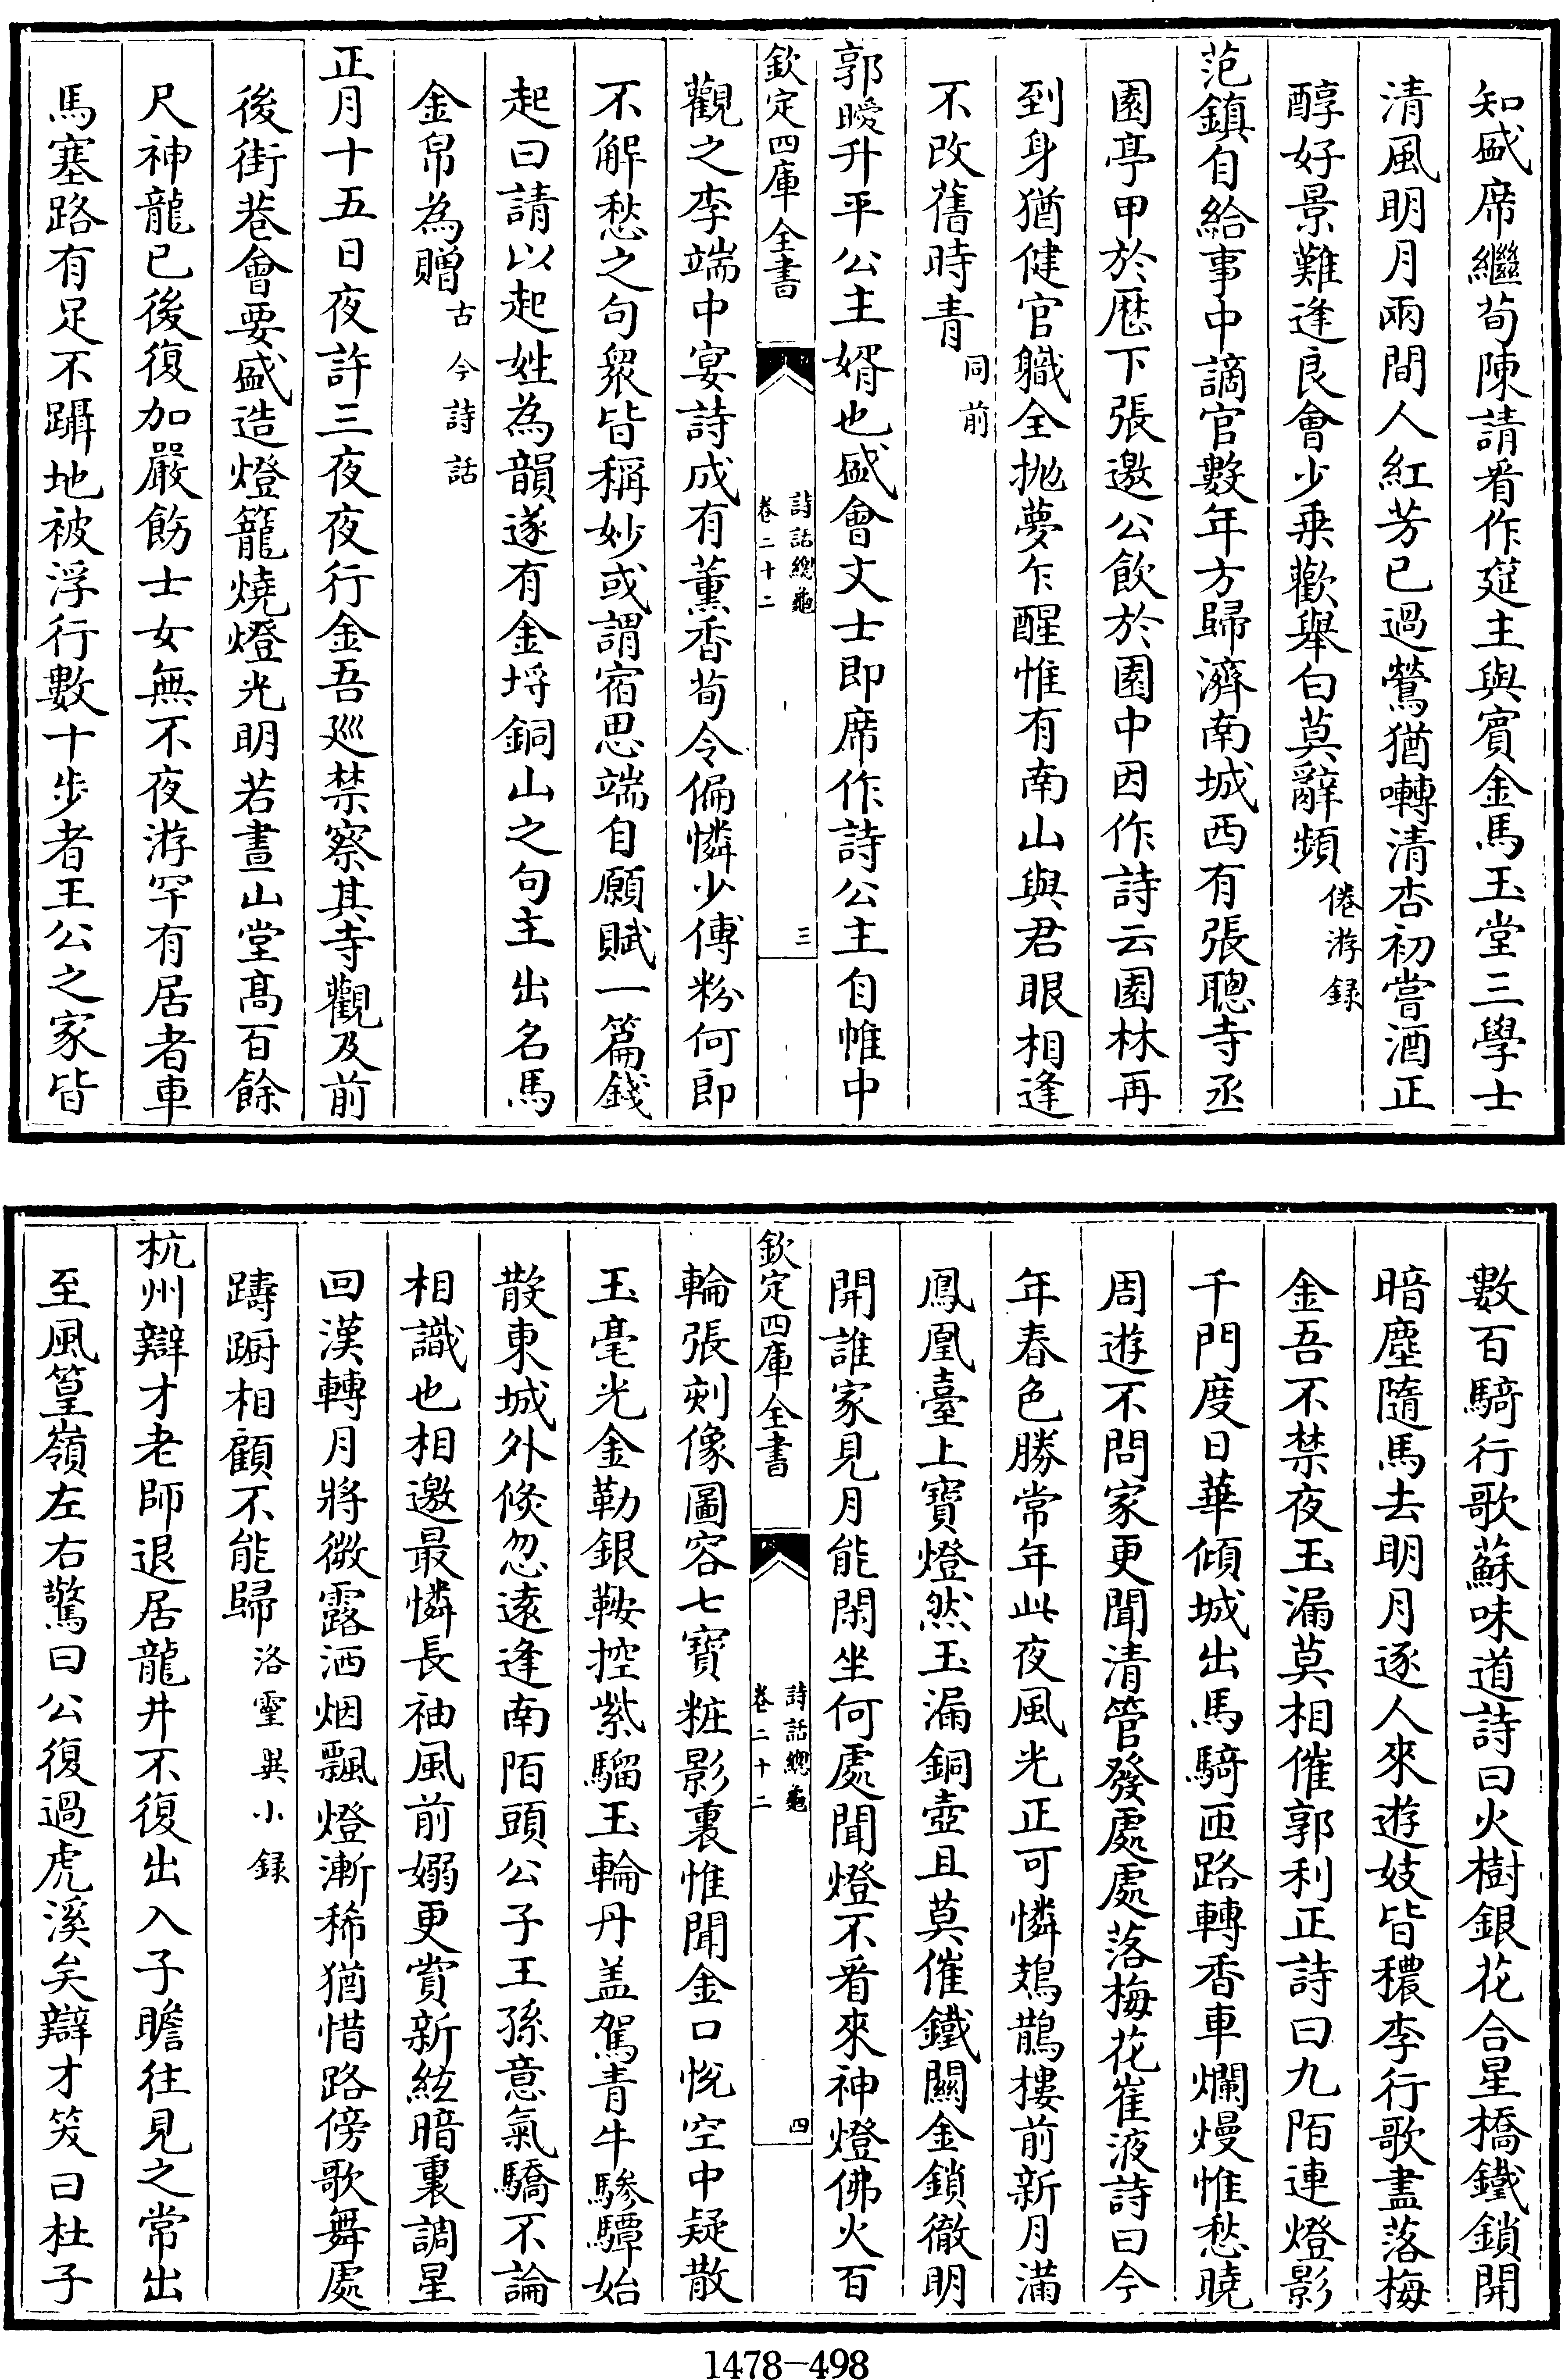 知盛席繼荀陳請看作筵主與賓金馬玉堂三學士
清風明月兩間人紅芳已過鶯猶囀清杏初嘗酒正
醇好景難逢良會少乗歡舉白莫辭頻倦游録
范鎮自給事中謫官數年方歸濟南城西有張聰寺丞
園亭甲於歴下張邀公飲於園中因作詩云園林再
到身猶健官職全抛夢乍醒惟有南山與君眼相逢
不改舊時青同前
郭曖升平公主婿也盛會文士即席作詩公主自帷中
欽定四庫全書
詩話總龜
卷二十二
三
觀之李端中宴詩成有薰香荀令偏憐少傅粉何郎
不解愁之句衆皆稱妙或謂宿思端自願賦一篇錢
起曰請以起姓為韻遂有金埒銅山之句主出名馬
金帛為贈古今詩話
正月十五日夜許三夜夜行金吾廵禁察其寺觀及前
後街巷會要盛造燈籠燒燈光明若晝山堂髙百餘
尺神龍已後復加嚴飭士女無不夜游罕有居者車
馬塞路有足不躡地被浮行數十步者王公之家皆
數百騎行歌蘇味道詩曰火樹銀花合星橋鐵鎖開
暗塵隨馬去明月逐人來遊妓皆穠李行歌盡落梅
金吾不禁夜玉漏莫相催郭利正詩曰九陌連燈影
千門度日華傾城出馬騎匝路轉香車爛熳惟愁曉
周遊不問家更聞清管發處處落梅花崔液詩曰今
年春色勝常年此夜風光正可憐鳷鵲樓前新月滿
鳳凰臺上寶燈然玉漏銅壺且莫催鐵關金鎖徹明
開誰家見月能閑坐何處聞燈不看來神燈佛火百
欽定四庫全書
詩話總龜
卷二十二
四
輪張刻像圖容七寶粧影裏惟聞金口恱空中疑散
玉毫光金勒銀鞍控紫騮玉輪丹盖駕青牛驂驔始
散東城外倐忽遠逢南陌頭公子王孫意氣驕不論
相識也相邀最憐長袖風前嫋更賞新絃暗裏調星
回漢轉月將微露洒烟飄燈漸稀猶惜路傍歌舞處
躊蹰相顧不能歸洛靈異小録
杭州辯才老師退居龍井不復出入子瞻往見之常出
至風篁嶺左右驚曰公復過虎溪矣辯才笑曰杜子
1478-498